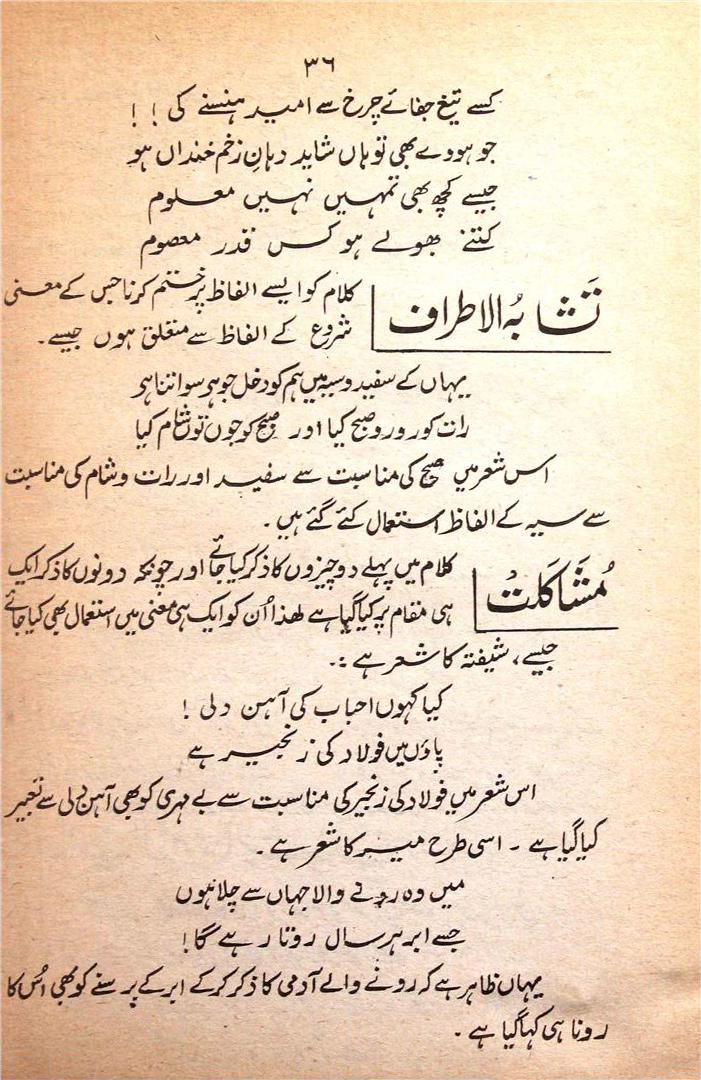 ۳۶
کسے تیغِ جفائے چرخ سے امید ہنسنے کی !!
جو ہووے بھی تو ہاں شاید دہانِ زخم خنداں ہو
جیسے کچھ بھی تمہیں نہیں معلوم
کتنے بھولے ہو کس قدر معصوم
تَشابُہ الاطراف
کلام کو ایسے الفاظ پر ختم کرنا جس کے معنی
شروع کے الفاظ سے متعلق ہوں جیسے۔
یہاں کے سفید و سیہ میں ہم کو دخل جو ہی سو اتنا ہی
رات کو رو رو صبح کیا اور صبح کو جوں توں شام کیا
اس شعر میں صبح کی مناسبت سے سفید اور رات و شام کی مناسبت
سے سیہ کے الفاظ استعمال کئے گئے ہیں۔
مُشَاکَلتْ
کلام میں پہلے دو چیزوں کا ذکر کیا جائے اور چونکہ دونوں کا ذکر ایک
ہی مقام پر کیا گیا ہے لھذا اُن کو ایک ہی معنی میں استعمال بھی کیا جائے
جیسے، شیفتہ کا شعر ہے :۔
کیا کہوں احباب کی آہن دلی !
پاؤں میں فولاد کی زنجیر ہے
اس شعر میں فولاد کی زنجیر کی مناسبت سے بے مہری کو بھی آہن دلی سے تعبیر
کیا گیا ہے ۔ اسی طرح میر کا شعر ہے ۔
میں وہ رونے والا جہاں سے چلا ہوں
جسے ابر ہر سال روتا رہے گا!
یہاں ظاہر ہے کہ رونے والے آدمی کا ذکر کرکے ابر کے برسنے کو بھی اُس کا
رونا ہی کہا گیا ہے ۔